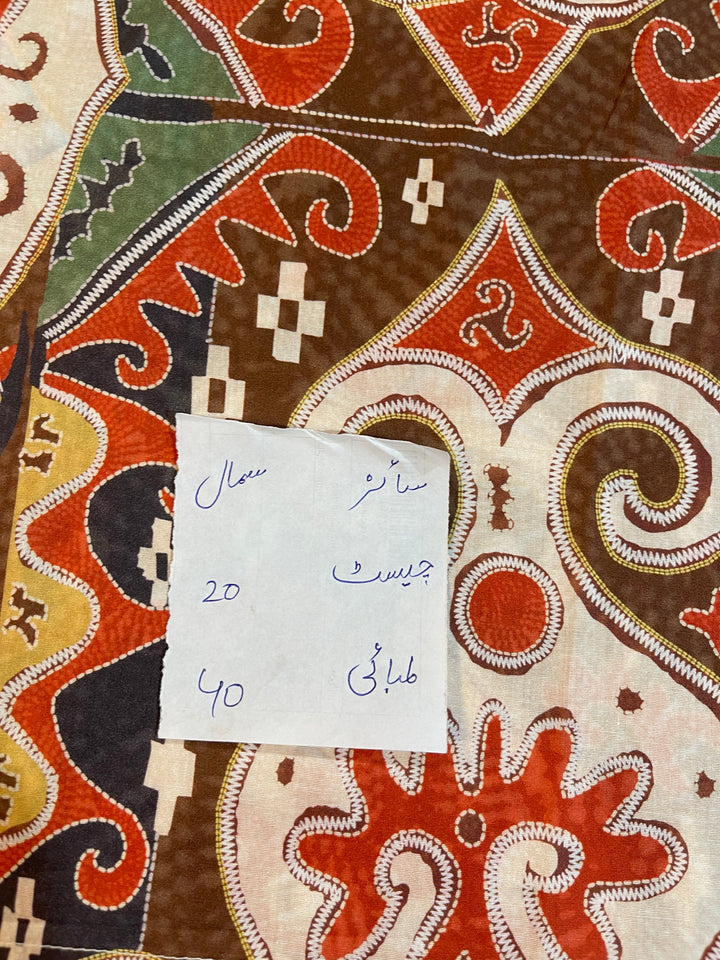 سائز سمال
چیسٹ 20
لمبائی 40